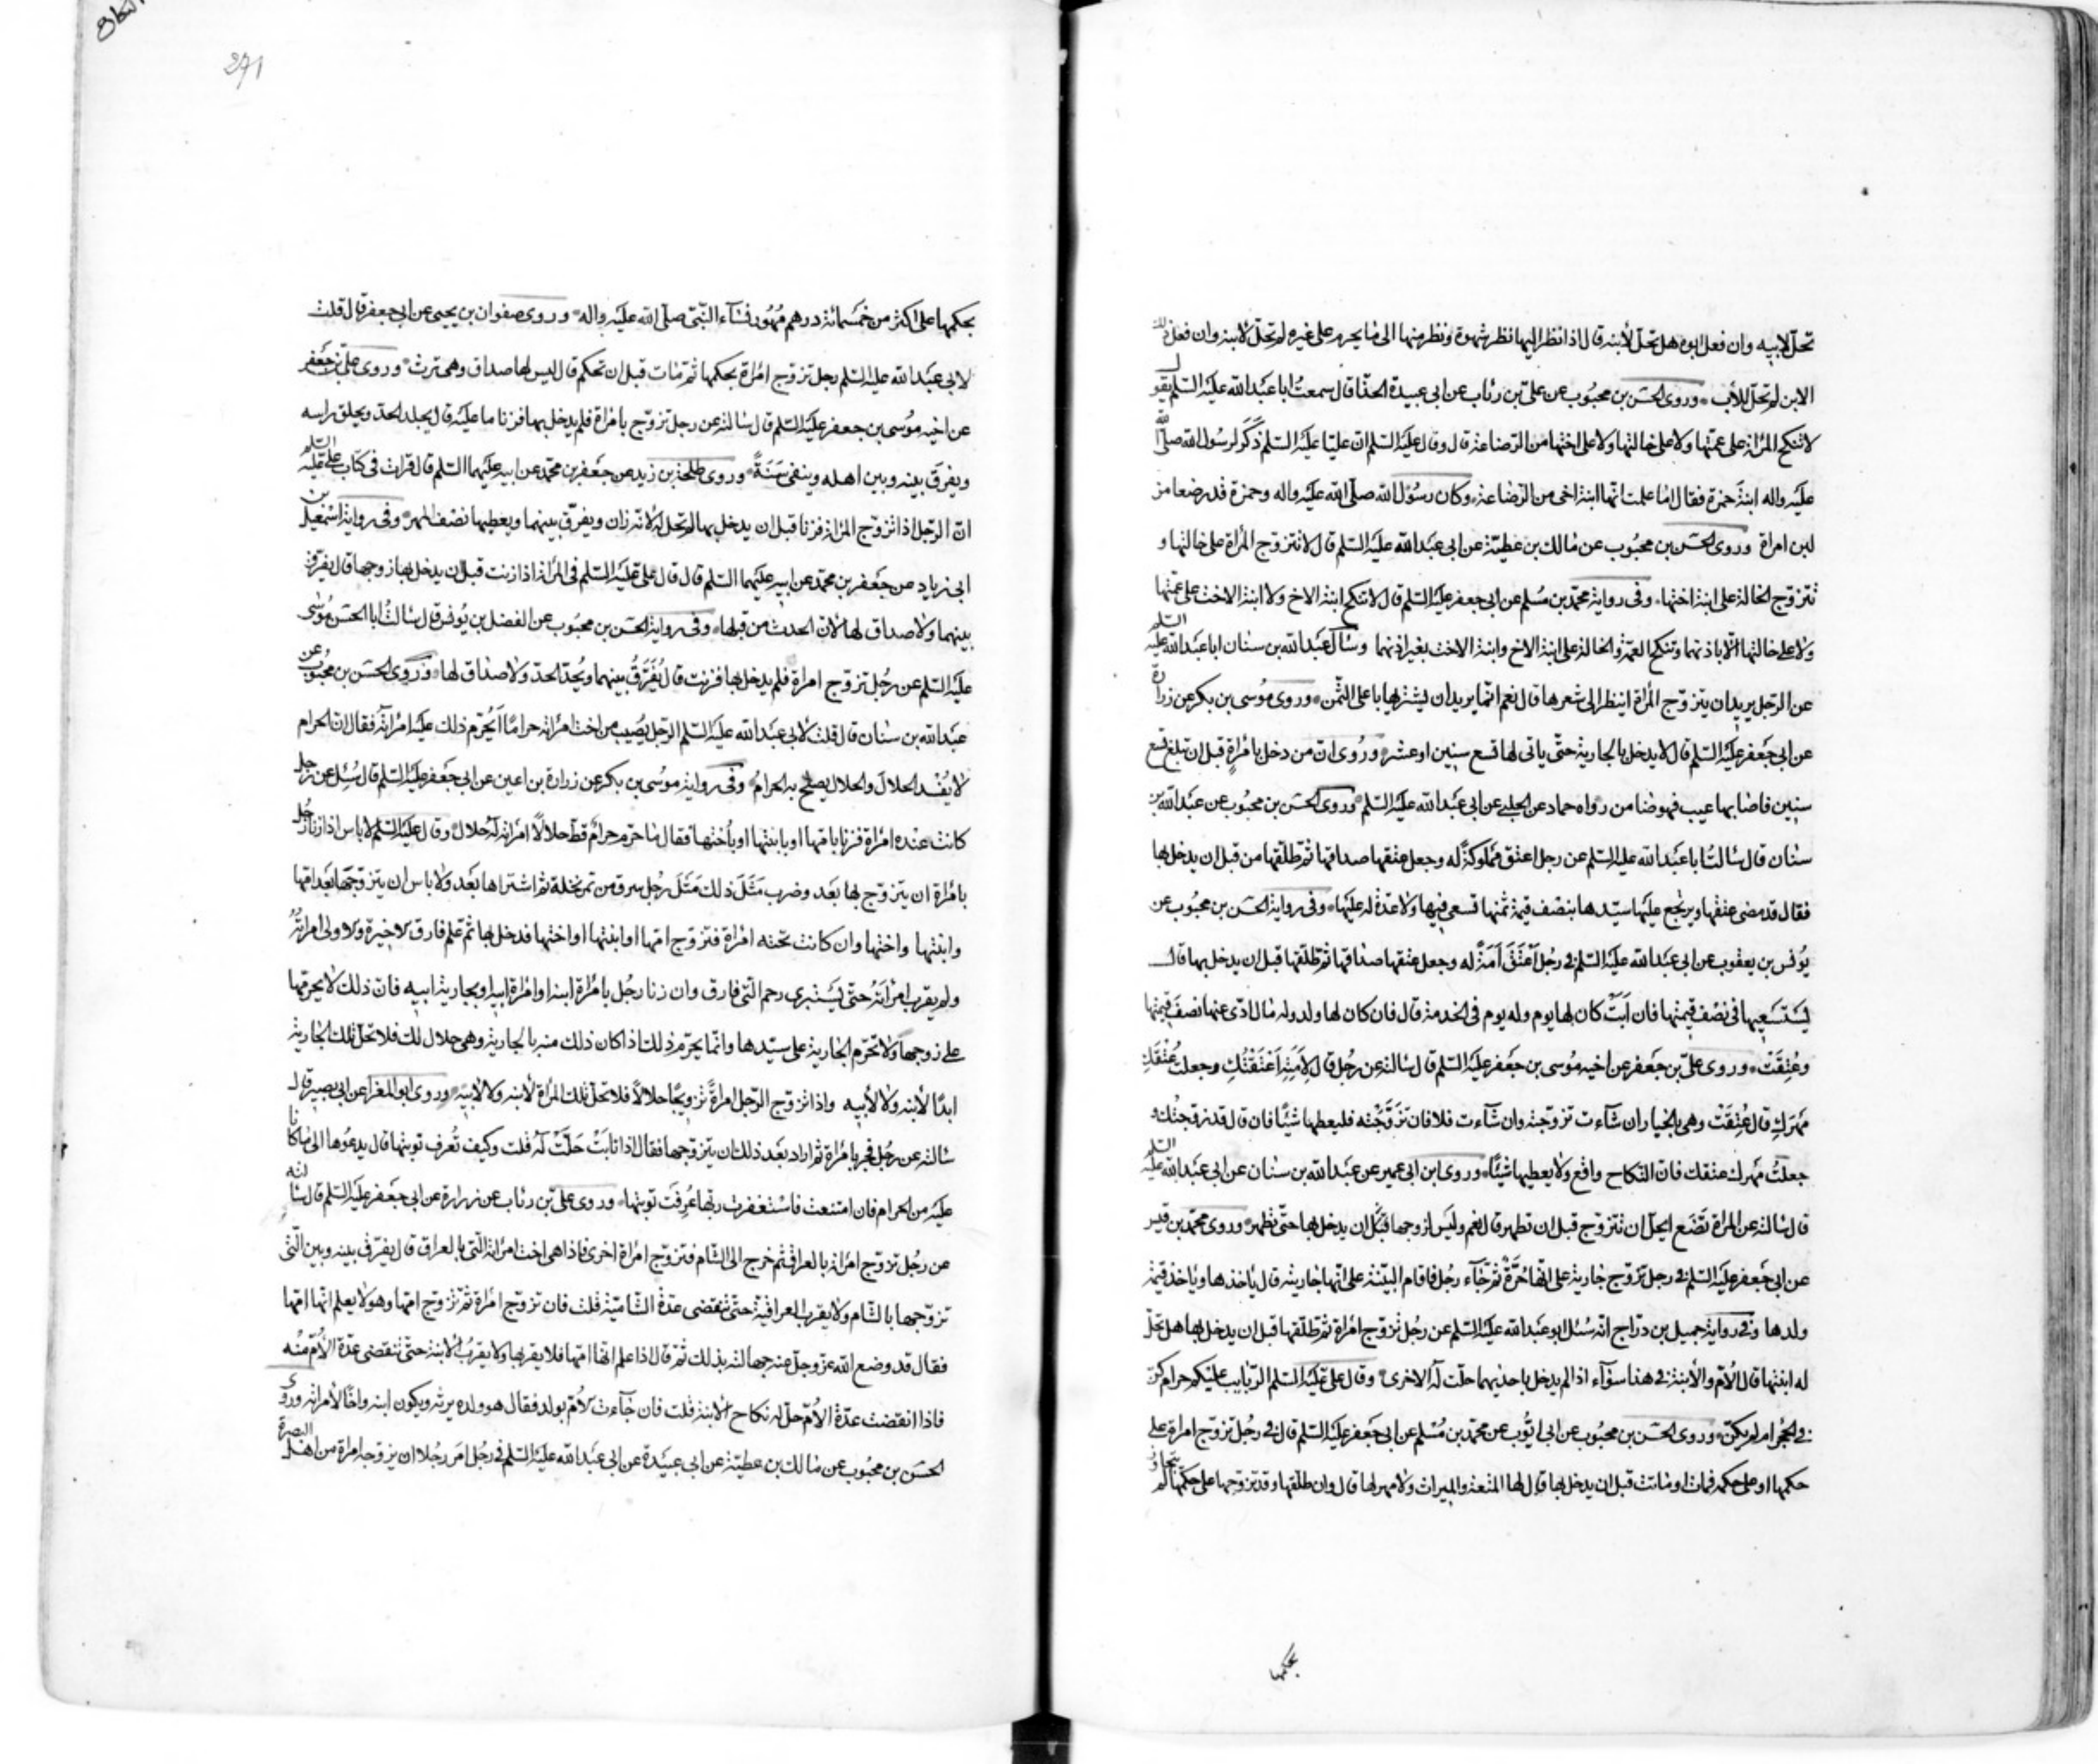 تحلّ لابيه وان فعل ابوه هل تحلّ لأبنه قال اذا نظر اليها نظر شهوة ونظر منها الى ما يحرم على غيره لم تحلّ لأبنه وان فعل ذلك
الابن لم تحلّ للأب وروى الحسن بن محبوب عن علىّ بن رئاب عن ابى عبيدة الحذّا قال سمعتُ ابا عبد الله عليه السّلم يقول
لا تنكح المرأة على عمّتها ولا على خالتها ولا على اختها من الرّضاعة قال وقال عليه السّلم انّ عليّا عليه السّلم ذَكَرَ لرسول الله صلّى الله
عليه واله ابنة حمزة فقال اما علمت انّها ابنة اخى من الرّضاعة وكان رسُول الله صلّى الله عليه واله وحمزة قد رضعا من
لبن امراة وروى الحسن بن محبُوب عن مالك بن عطيّة عن ابى عبد الله عليه السّلم قال لا تتزوّج المرأة على خالتها و
تتزوّج الخالة على ابنة اختها وفى رواية محمّد بن مُسلم عن ابى جعفر عليه السّلم قال لا تنكح ابنة الاخ ولا ابنة الاخت على عمّتها
ولا على خالتها الّا باذنهما وتنكح العمّة والخالة على ابنة الاخ وابنة الاخت بغير اذنهما وسأل عبد الله بن سنان ابا عبد الله عليه السّلم
عن الرّجل يريد ان يتزوّج المرأة اينظر الى شعرها قال نعم انّما يريد ان يشتريها باعلى الثّمن وروى مُوسى بن بكر عن زرارة
عن ابى جعفر عليه السّلم قال لا يدخل بالجارية حتّى ياتى لها تسع سنين او عشر ورُوى انّ من دخل بامْراةٍ قبل ان تبلغ تسع
سنين فاصابها عيب فهو ضامن رواه حماد عن الحلبى عن ابى عبد الله عليه السّلم وروى الحسن بن محبُوب عن عبد الله بن
سنان قال سالتُ ابا عبد الله عليه السّلم عن رجل اعتق مملوكةً له وجعل عتقها صداقها ثم طلّقها من قبل ان يدخل بها
فقال قد مضى عتقها ويرتجع عليها سيّدها بنصف قيمة ثمنها تسعى فيها ولا عدّة له عليها وفى رواية الحسن بن محبُوب عن
يُونس بن يعقوب عن ابى عبد الله عليه السّلم فى رجُل اَعْتَقَ اَمَةً له وجعل عتقها صداقها ثم طلّقها قبل ان يدخل بها قال
يَستَسْعِيها فى نصْف قيمتها فان اَبَتْ كان لها يوم وله يوم فى الخدمة قال فان كان لها ولد وله مال ادّى عنها نصف قيمتها
وعُتِقَتْ وروى علىّ بن جعفر عن اخيه مُوسى بن جعفر عليه السّلم قال سالته عن رجُل قال لِأَمَتِهِ اَعْتَقْتُكِ وجعلت عتقكِ
مهرَكِ قال عُتِقَتْ وهى بالخيار ان شآءت تزوّجته وان شآءت فلا فان تَزَوَّجَتْه فليعطها شيئًا فان قال قد تزوّجتُك و
جعلتُ مهرك عتقك فانّ النّكاح واقع ولا يعطيها شيئًا وروى ابن ابى عمير عن عبد الله بن سنان عن ابى عبد الله عليه السّلم
قال سالته عن المراة تَضَع ايحلّ ان تتزوّج قبل ان تطهر قال نعم وليس لزوجها قبل ان يدخل بها حتّى تطهر وروى محمّد بن قيس
عن ابى جعفر عليه السّلم فى رجل تزوّج جارية على انّها حُرَّةٌ ثم جآء رجُل فاقام البيّنة على انّها جاريته قال ياخذها وياخذ قيمة
ولدها وفى رواية جميل بن درّاج انّه سُئل ابو عبد الله عليه السّلم عن رجُل تزوّج امرأة ثم طلّقها قبل ان يدخل بها هل تحلّ
له ابنتها قال الأمّ والأبنة فى هذا سوآء اذا لم يدخل باحديهما حلّت له الاخرى وقال علىّ عليه السّلم الرّبايب عليكم حرام كنّ
فى الحجر ام لم يكنّ وروى الحسن بن محبُوب عن ابى ايّوب عن محمّد بن مُسْلم عن ابى جعفر عليه السّلم قال فى رجُل تزوّج امراة على
حكمها او على حكمه فمات او ماتت قبل ان يدخل بها قال لها المتعة والميراث ولا مهر لها قال وان طلّقها وقد تزوّجها على حكمها لم يتجاوز
بحكمها
النكاح
271
بحكمها على اكثر من خمسمائة درهم مُهُور نسآء النّبىّ صلّى الله عليه واله وروى صفوان بن يحيى عن ابى جعفر قال قلت
لابى عبد الله عليه السّلم رجل تزوّج امرأة بحكمها ثم مات قبل ان تحكم قال ليس لها صداق وهى ترث وروى علىّ بن جعفر
عن اخيه مُوسى بن جعفر عليه السّلم قال سالته عن رجل تزوّج بامراة فلم يدخل بها فزنا ما عليه قال يجلد الحدّ ويحلق راسه
ويفرَق بينه وبين اهله وينفى سَنَةً وروى طلحة بن زيد عن جعفر بن محمّد عن ابيه عليهما السّلم قال قرات فى كتاب علىّ عليه السّلم
انّ الرّجل اذا تزوّج المرأة فزنا قبل ان يدخل بها لم تحلّ له لانّه زان ويفرّق بينهما ويعطيها نصف المهر وفى رواية اسمعيل بن
ابى زياد عن جعفر بن محمّد عن ابيه عليهما السّلم قال قال علىّ عليه السّلم فى المرأة اذا زنت قبل ان يدخل بها زوجها قال يفرّق
بينهما ولا صداق لها لأنّ الحدث من قبلها وفى رواية الحسن بن محبُوب عن الفضل بن يُونس قال سالتُ ابا الحسن مُوسى
عليه السّلم عن رجُل تزوّج امراة فلم يدخل بها فزنت قال يُفَرَّقُ بينهما ويُحدّ الحدّ ولا صداق لها وروى الحسن بن محبُوب عن
عبد الله بن سنان قال قلت لأبى عبد الله عليه السّلم الرّجل يُصيب من اخت امرأته حرامًا أيُحرّم ذلك عليه امرأته فقال انّ الحرام
لا يُفسد الحلال والحلال يصلح به الحرامُ وفى رواية موسُى بن بكر عن زرارة بن اعين عن ابى جعفر عليه السّلم قال سُئِل عن رجل
كانت عنده امرأة فزنا بامّها او بابنتها او باختها فقال ما حرّم حرامٌ قطّ حلالًا امرأته له حلال وقال عليه السّلم لا باس اذا زنا رجُل
بامْرأة ان يتزوّج بها بعَد وضرب مَثَلَ ذلك مَثَلَ رجُل سرق من تمر نخلة ثم اشتراها بعَد ولا باس ان يتزوّجها بعَد امّها
وابنتها واختها وان كانت تحته امْرأة فتزوّج امّها او ابنتها او اختها فدخل بها ثم علم فارق الاخيرة والاولى امراتُهُ
ولم يقرب امْرأتَهُ حتّى يَستبرى رحم الّتى فارق وان زنا رجُل بامْراة ابنه او امْراة ابيه او بجارية ابيه فانّ ذلك لا يحرّمها
على زوجها ولا تحرم الجارية على سيّدها وانّما يحرّم ذلك اذا كان ذلك منه بالجارية وهى حلال لك فلا تحلّ تلك الجارية
ابدًا لأبنه ولا لأبيه واذا تزوّج الرّجل امرأةً تزويجًا حلالاً فلا تحلّ تلك المرأة لأبنه ولا لأبيه وروى ابو المغرا عن ابى بصير قال
سالته عن رجُل فجر بامْرأة ثم اراد بعد ذلك ان يتزوّجها فقال اذا تابَتْ حَلّتْ لَه قلت وكيف تُعرف توبتها قال يدعُوها الى ما كانا
عليه من الحرام فان امتنعت فاستغفرت ربّها عُرِفَت توبتها وروى علىّ بن رئاب عن زرارة عن ابى جعفر عليه السّلم قال سالته
عن رجُل تزوّج امْرأة بالعراق ثم خرج الى الشّام فتزوّج امراة اخرى فاذا هى اخت امرأته الّتى بالعراق قال يفرّق بينه وبين الّتى
تزوّجها بالشّام ولا يقرب العراقيّة حتّى تنقضى عدّة الشّاميّة قلت فان تزوّج امْرأة ثم تزوّج امّها وهو لا يعلم انّها امّها
فقال قد وضع الله عزّ وجلّ عنه جهالته بذلك ثم قال اذا علم انّها امّها فلا يقربها ولا يقربُ الابنة حتّى تنقضى عدّة الأمّ منْه
فاذا انقضت عدّة الأمّ حلّ له نكاح الابنة قلت فان جآءت الأمّ بولد فقال هو ولده يرثه ويكون ابنه واخًا لأمرأته وروى
الحسن بن محبُوب عن مالك بن عطيّة عن ابى عبيدة عن ابى عبد الله عليه السّلم فى رجُل امَر رجُلا ان يزوّجه امراة من اهل البصرة